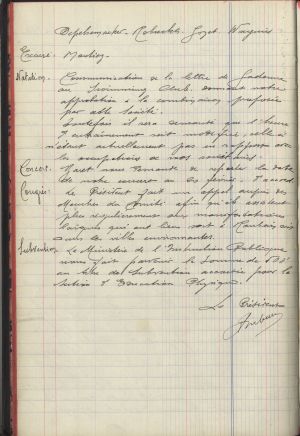 Depelsemacker - Robert - Goget - Wagnies
Excusé : Mantion.
Natation. Communication de la lettre de
au Swimming Club, donnant notre
approbation à la combinaison proposée
par cette Société.
Toutefois il sera demandé que l'heure
d'entraînement soit modifiée, celle-ci
n'étant actuellement pas en rapport avec
les occupations de nos sociétaires.
Concert. nous demande de reporter la date
de notre concert au 20 février. D'accord
Congrès. Le Président fait un appel auprès des
Membres du Comité afin qu'ils assistent
plus régulièrement aux manifestations
laïques qui ont lieu soit à Roubaix soit
dans les villes environnantes.
Subvention. Le Ministère de l'Instruction Publique
nous fait parvenir la somme de
au titre de Subvention accordée pour la
Section d'Education Physique.
Le Président